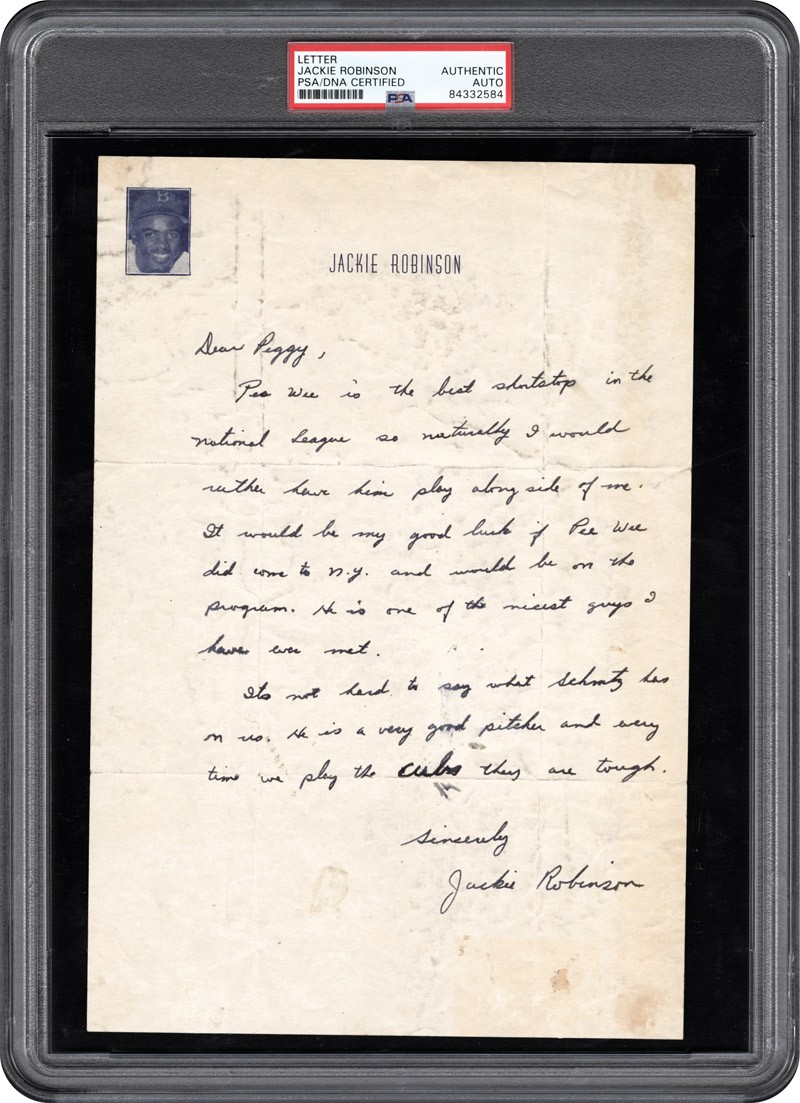 LETTER
JACKIE ROBINSON
PSA/DNA CERTIFIED
AUTHENTIC
AUTO
84332584
PSA
B
JACKIE ROBINSON
Dear Peggy,
Pee Wee is the best shortstop in the
national league so naturally I would
rather have him play along side of me.
It would be my good luck if Pee Wee
did come to N.Y. and would be on the
program. He is one of the nicest guys I
have ever met.
Its not hard to say what Schmitz has
on us. He is a very good pitcher and every
time we play the cubs they are tough.
Sincerely
Jackie Robinson